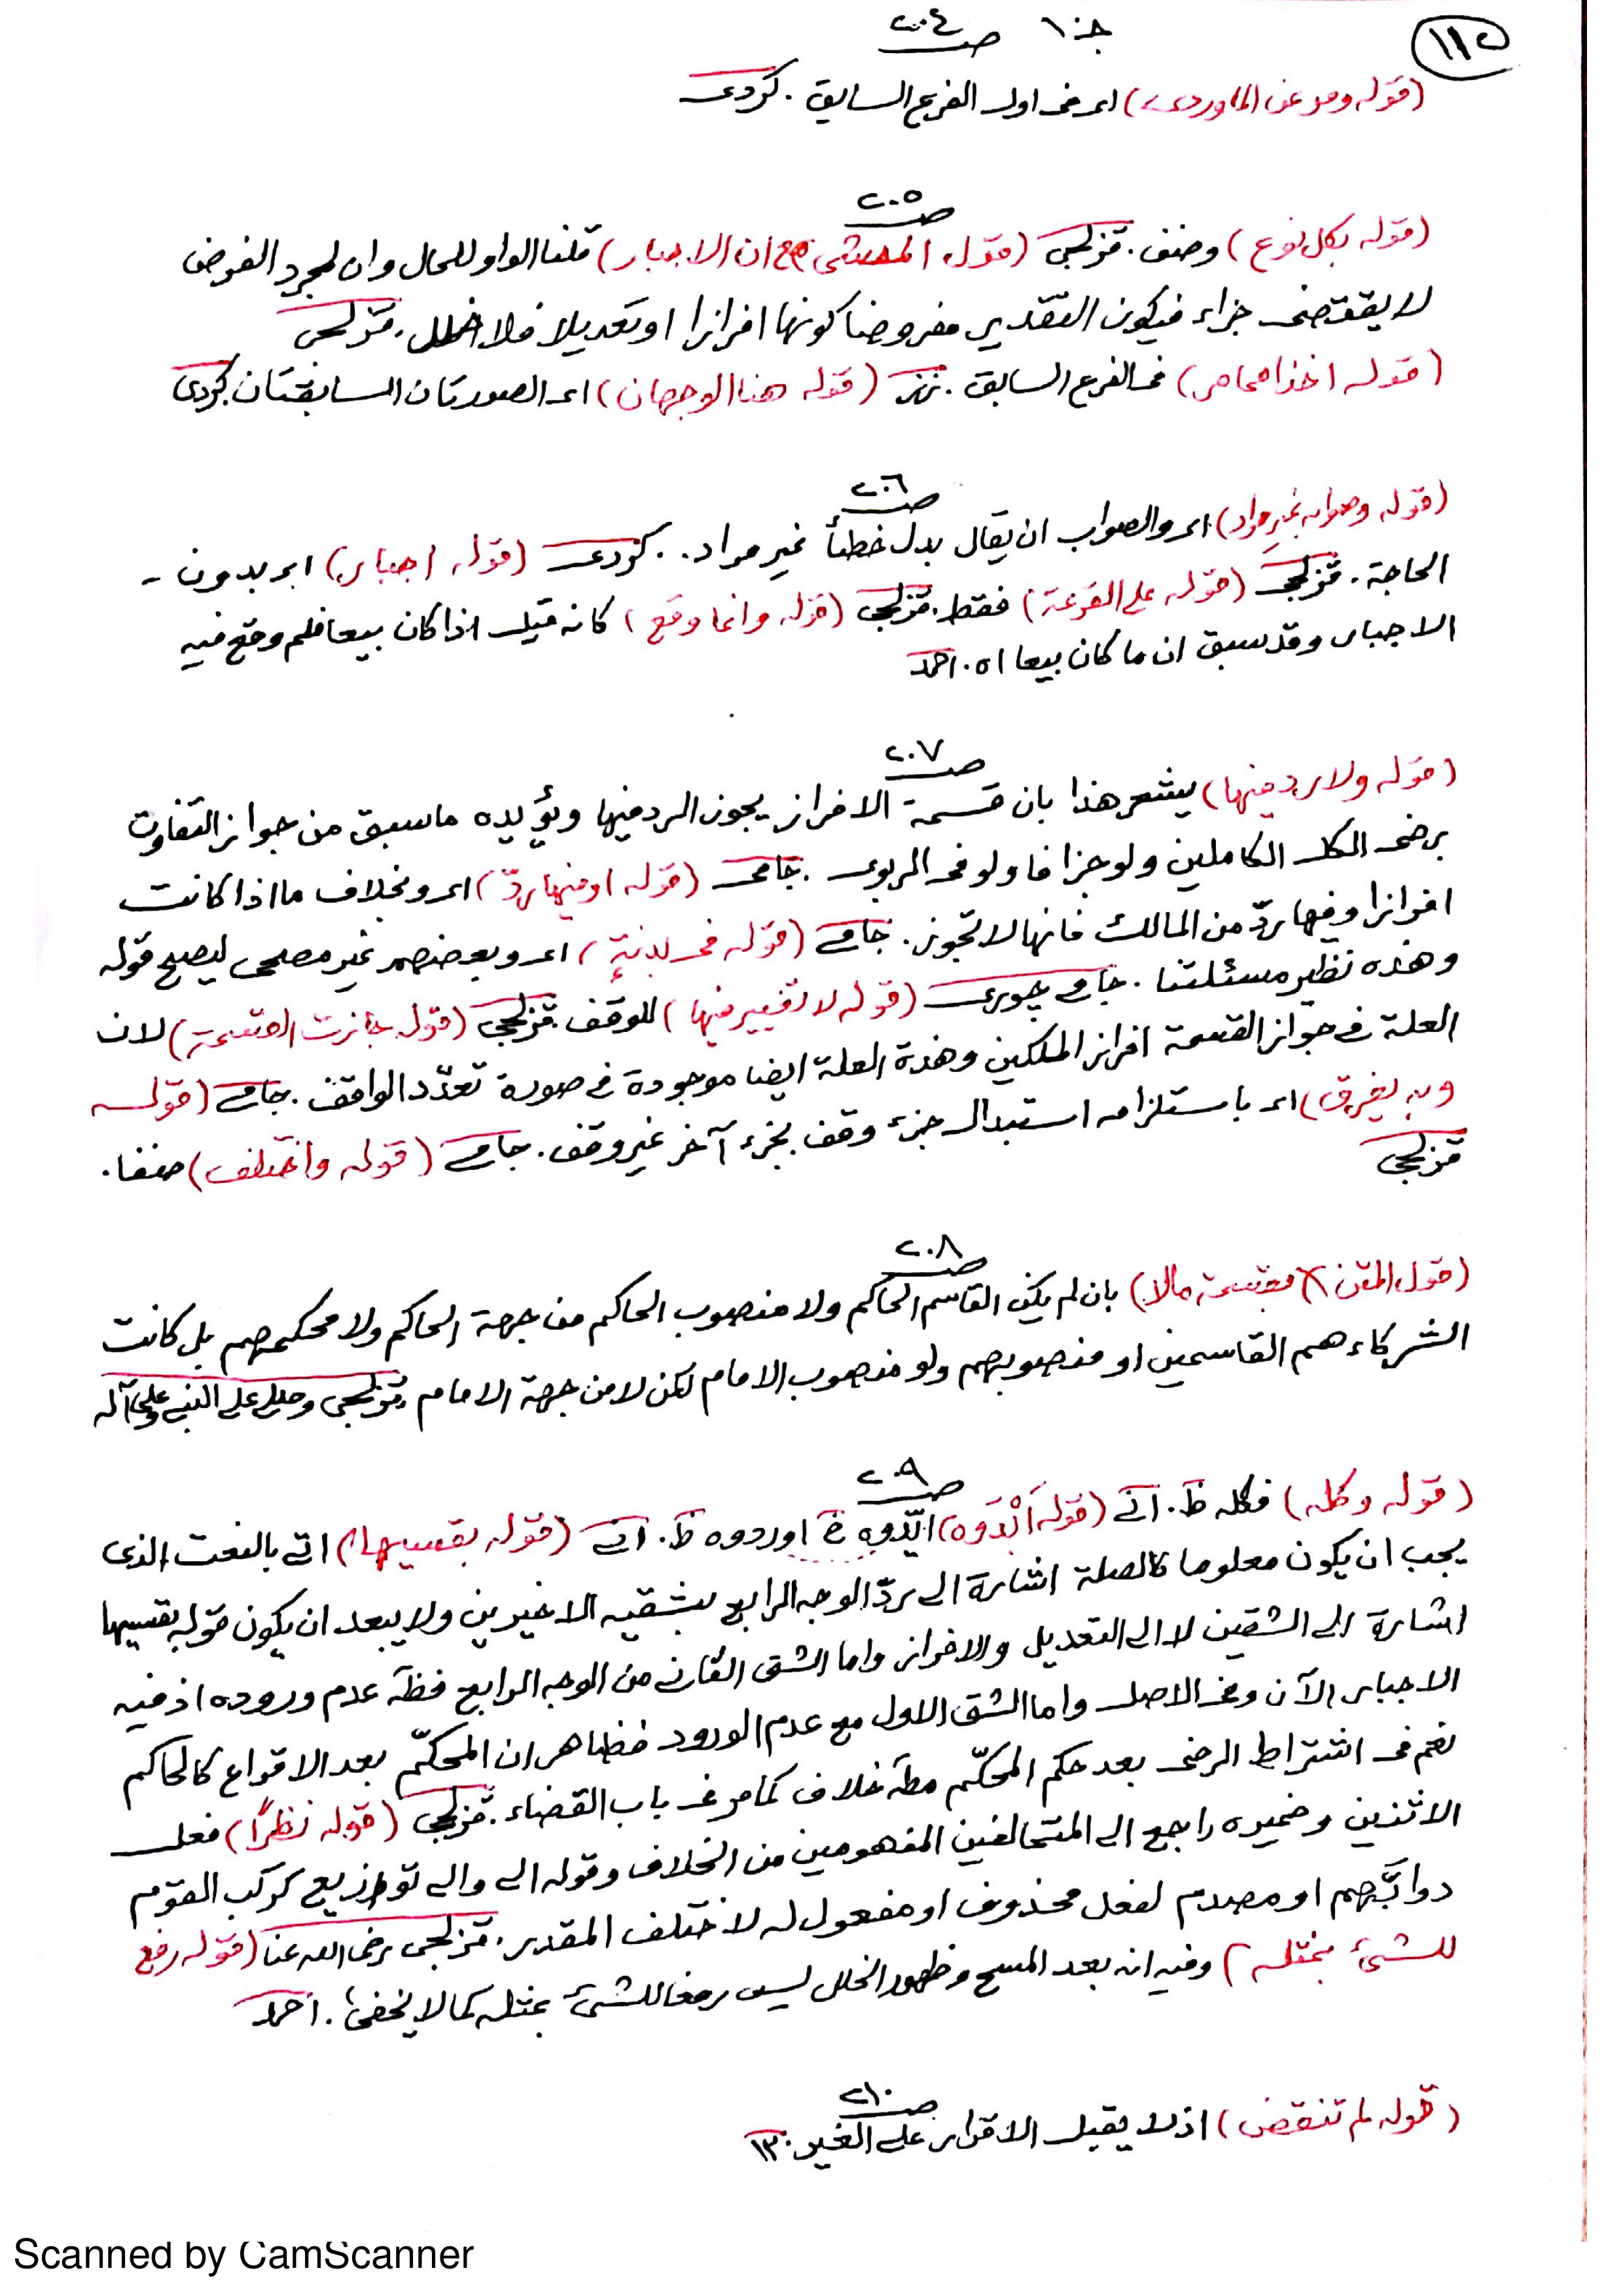 ١١٥
جـ ١٠ صـ ٢٠٤
(قوله ومر عن الماوردى) اى فى اول الفرع السابق. كردى
صـ ٢٠٥
(قوله بكل نوع) وصنف. قزلجى (قول المحشى مع ان الاجبار) قلنا الواو للحال وان لمجرد الفرض
لا يقتضى جزاء فيكون التقدير مفروضا كونها افرازا او تعديلا فلا خلل. قزلجى
(قوله اخذا مما مر) فى الفرع السابق. نز (قوله هنا الوجهان) اى الصورتان السابقتان. كردى
صـ ٢٠٦
(قوله وصوابه غير مراد) اى والصواب ان يقال بدل خطأ غير مراد. كردى (قوله اجبار) اى بدون
الحاجة. قزلجى (قوله على القرعة) فقط. قزلجى (قوله وانما وقع) كانه قيل اذا كان بيعا فلم وقع فيه
الاجبار وقد سبق ان ما كان بيعا اه. احمد
صـ ٢٠٧
(قوله ولا رد فيها) يشعر هذا بان قسمة الافراز يجوز الرد فيها ويؤيده ما سبق من جواز التفاوت
برضى الكل الكاملين ولو جزافا ولو فى الربوى. جامى (قوله او فيها ردّ) اى وبخلاف ما اذا كانت
افرازا وفيها ردّ من المالك فانها لا تجوز. جامى (قوله فى بدنةٍ) اى وبعضهم غير مضحى ليصح قوله
وهذه نظير مسئلتنا. جامى چورى (قوله لا تغيير فيها) للوقف. قزلجى (قوله جازت القسمة) لان
العلة فى جواز القسمة افراز الملكين وهذة العلة ايضا موجودة فى صورة تعدّد الواقف. جامى (قوله
وبه يفرق) اى باستلزامه استبدال جزء وقف بجزء آخر غير وقف. جامى (قوله واختلف) صنفا.
قزلجى
صـ ٢٠٨
(قول المتن بقسمة مالا) بان لم يكن القاسم الحاكم ولا منصوب الحاكم من جهة الحاكم ولا محكمهم بل كانت
الشركاء هم القاسمين او منصوبهم ولو منصوب الامام لكن لا من جهة الامام. قزلجى وصلى على النبى وعلى آله
صـ ٢٠٩
(قوله وكله) فكله ظ. انى (قوله أبْدَوه) ابدوه خ اوردوه ظ. انى (قوله بقسيمها) اتى بالنعت الذى
يجب ان يكون معلوما كالصلة اشارة الى ردّ الوجه الرابع بشقيه الاخيرين ولا يبعد ان يكون قوله بقسيمها
اشارة الى الشقين لا الى التعديل والافراز واما الشق الثانى من الوجه الرابع فظ عدم وروده اذ فيه
الاجبار الآن وفى الاصل واما الشق الاول مع عدم الورود فظاهر ان المحكّم بعد الاقراع كالحاكم
نعم فى اشتراط الرضى بعد حكم المحكّم مط خلاف كما مر فى باب القضاء. قزلجى (قوله نظرًا) فعل
الاثنين وضميره راجع الى المتخالفين المفهومين من الخلاف وقوله الى والى توازيع كركب القوم
دوابّهم او مصدر لفعل محذوف او مفعول له لاختلف المقدر. قزلجى رضى الله عنا (قوله رفع
للشئ بمثله) وفيه انه بعد المسح وظهور الخلل ليس رفعا للشئ بمثله كما لا يخفى. احمد
صـ ٢١٠
(قوله لم تنقض) اذ لا يقبل الاقرار على الغير. ١٣
Scanned by CamScanner